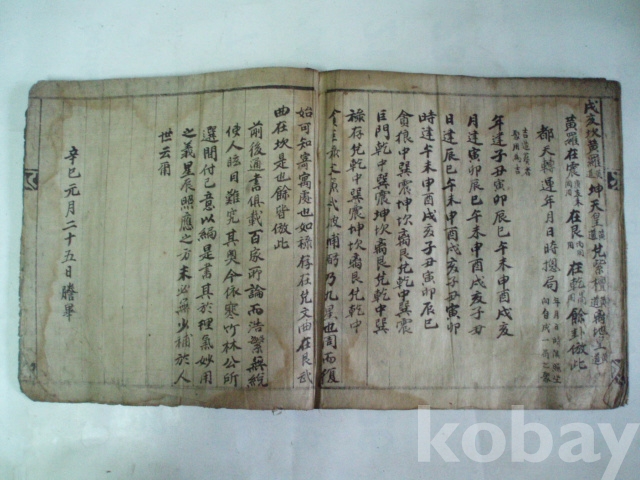 戌亥坎黃羅 坤天皇 兌紫檀
黃羅在震 在艮 在乾 餘卦倣此
都天轉運年月日時摠局
年逢子丑寅卯辰巳午未申酉戌亥
月逢寅卯辰巳午未申酉戌亥子丑
日逢辰巳午未申酉戌亥子丑寅卯
時逢午未申酉戌亥子丑寅卯辰巳
貪狼中巽震坤坎离艮兌乾中巽震
巨門乾中巽震坤坎离艮兌乾中巽
祿存兌乾中巽震坤坎离艮兌乾中
文廉武破輔弼乃九星也周而復
始可知寄寓處也如祿存在兌文曲在艮武
曲在坎是也餘皆倣此
前後通書俱載百家所論而浩繁無統
使人臨目難究其奧今依寒竹林公所
選閒付已意以編是書其於理氣妙用
之義星辰照應之方未必無少補於人
世云爾
辛巳元月二十五日謄畢
kobay